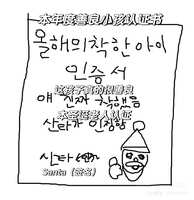 本年度善良小孩认证书
올해의 착한 아이
인증서
这孩子真的很善良
얘 진짜 착했음
本圣诞老人认证
산타가 인정함
산타
Santa（签名）